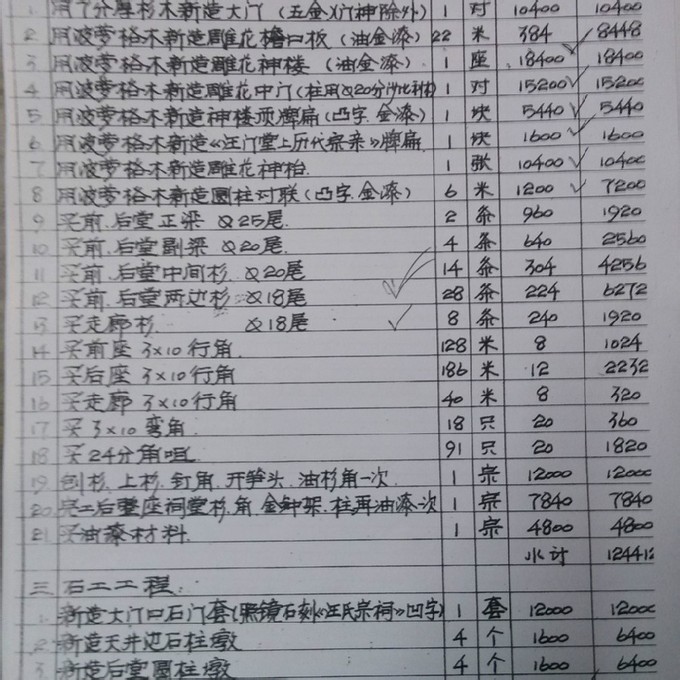 1. 用7分厚杉木新造大门(五金、门神除外) 1 对 10400 10400
2 用波萝格木新造雕花檐口板(油金漆) 22 米 384 8448
3 用波萝格木新造雕花神楼(油金漆) 1 座 18400 18400
4 用波萝格木新造雕花中门(柱用Q20分沙比利) 1 对 15200 15200
5 用波萝格木新造神楼顶牌扁(凸字.金漆) 1 块 5440 5440
6 用波萝格木新造《汪门堂上历代宗亲》牌扁. 1 块 1600 1600
7 用波萝格木新造雕花神枱 1 张 10400 10400
8 用波萝格木新造圆柱对联(凸字.金漆) 6 米 1200 7200
9 买前.后堂正梁 Q25尾. 2 条 960 1920
10 买前.后堂副梁 Q20尾. 4 条 640 2560
11 买前.后堂中间杉 Q20尾 14 条 304 4256
12 买前.后堂两边杉 Q18尾 28 条 224 6272
13 买走廊杉. Q18尾 8 条 240 1920
14 买前座 3×10行角 128 米 8 1024
15 买后座 3×10行角 186 米 12 2232
16 买走廊 3×10行角 40 米 8 320
17 买 3×10弯角. 18 只 20 360
18 买 24分角咀. 91 只 20 1820
19 刨杉.上杉.钉角.开笋头.油杉角一次. 1 宗 12000 12000
20 完工后整座祠堂杉.角.金钟架.柱再油漆一次 1 宗 7840 7840
21 买油漆材料. 1 宗 4800 4800
小计 124412
三 石工工程:
1. 新造大门口石门套(照镜石刻《汪氏宗祠》凹字) 1 套 12000 12000
2. 新造天井边石柱墩 4 个 1600 6400
3. 新造后堂圆柱墩 4 个 1600 6400